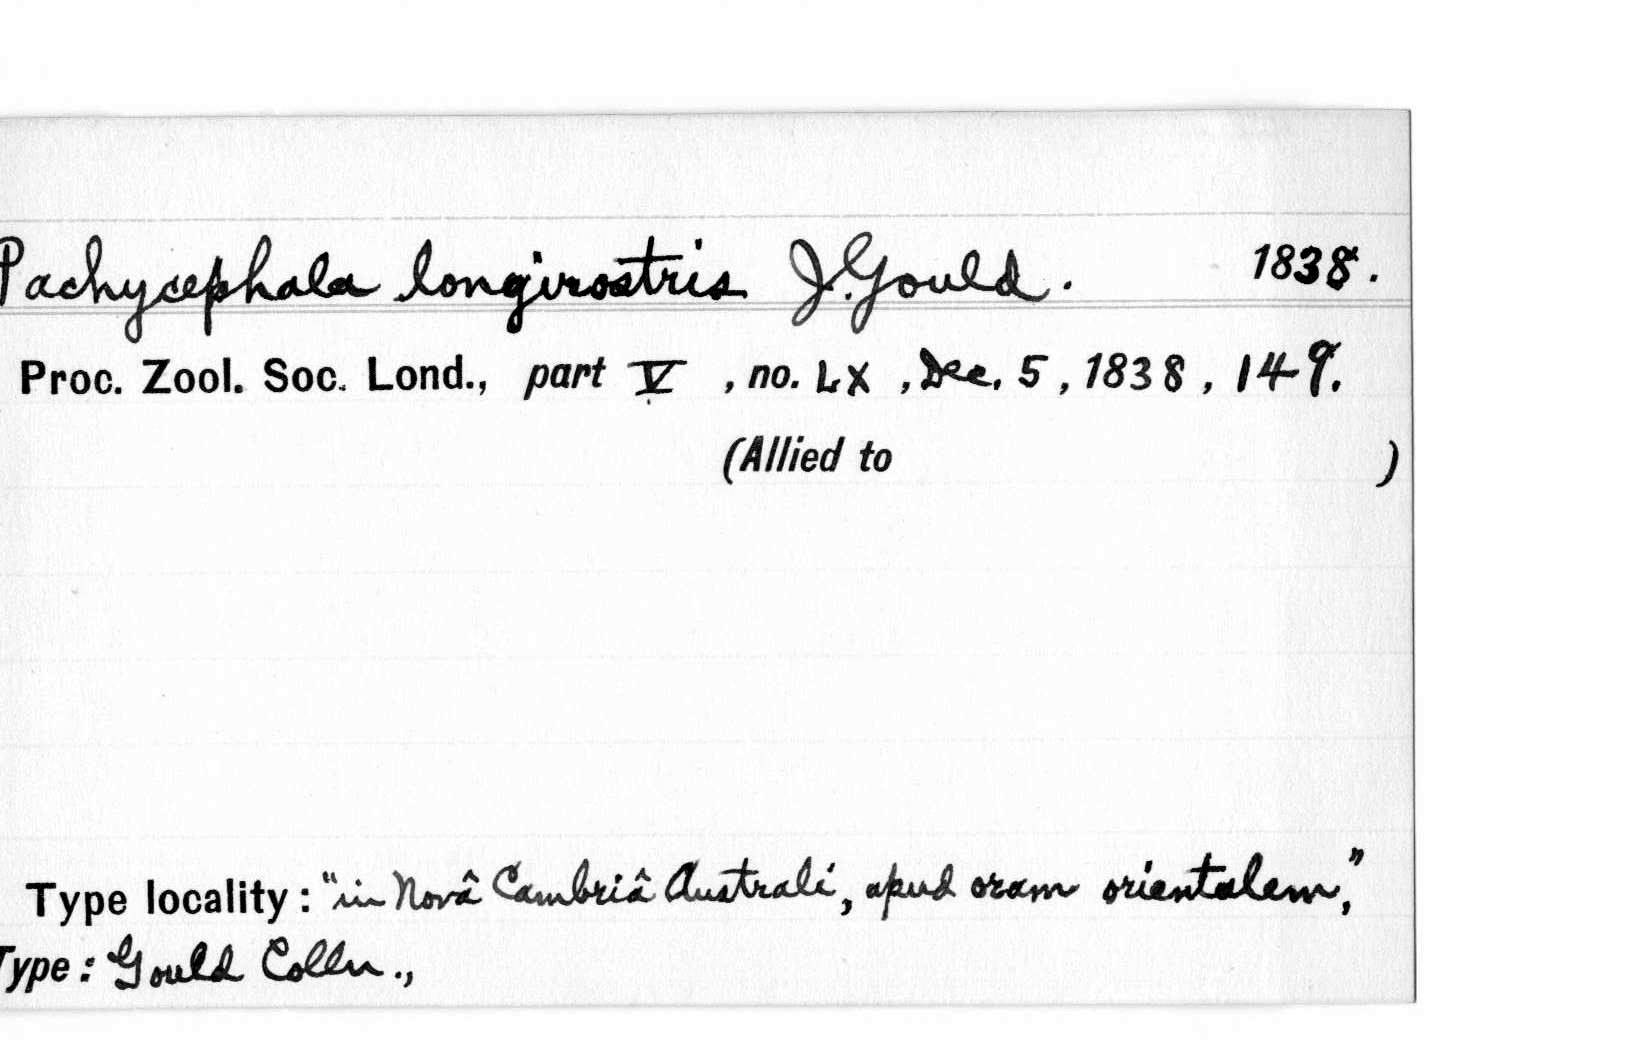 Pachycephala longirostris J. Gould. 1838.
Proc. Zool. Soc. Lond., part V, no. LX, Dec. 5, 1838, 149.
(Allied to )
Type locality: "in Novâ Cambriâ Australi, apud oram orientalem,"
Type: Gould Colln.,